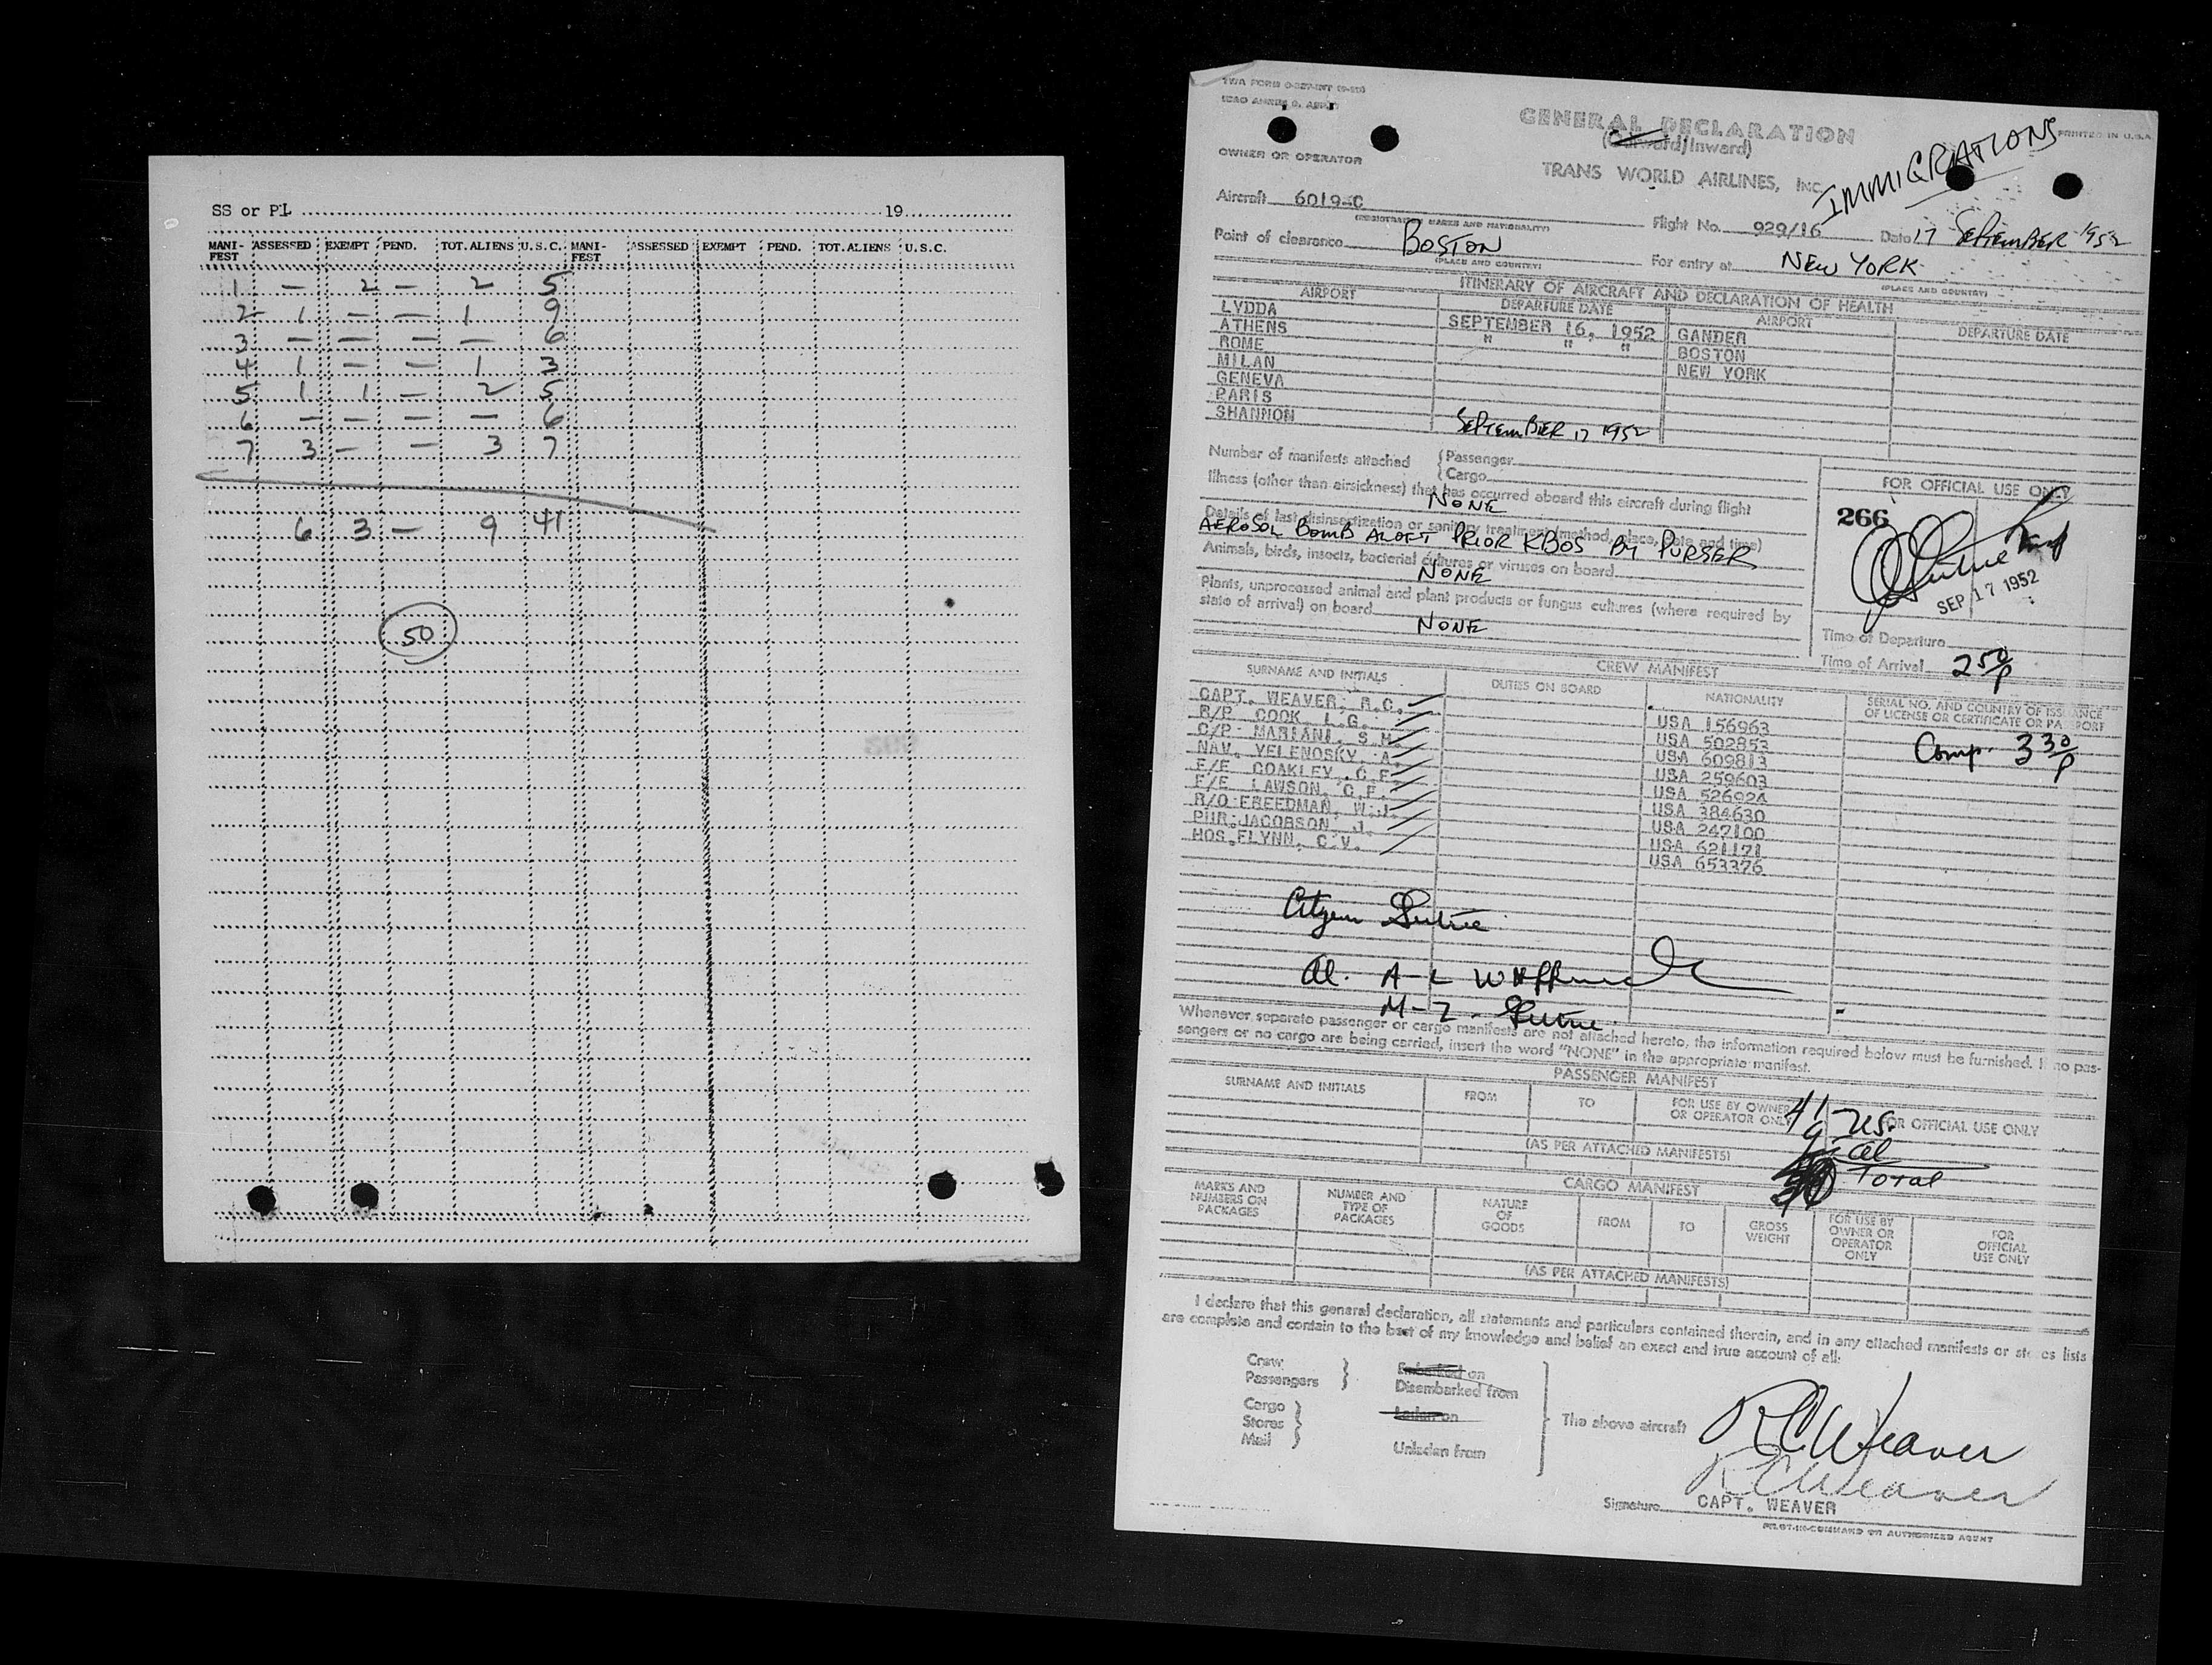 SS or PL 19
MANI-FEST ASSESSED EXEMPT PEND. TOT. ALIENS U.S.C. MANI-FEST ASSESSED EXEMPT PEND. TOT. ALIENS U.S.C.
1 — 2 — 2 5
2 1 — — 1 9
3 — — — — 6
4 1 — — 1 3
5 1 1 — 2 5
6 — — — — 6
7 3 — — 3 7
6 3 — 9 41
50
TWA FORM O-327-INT
ICAO ANNEX 9, APP.
GENERAL DECLARATION
(Outward/Inward)
PRINTED IN U.S.A.
IMMIGRATIONS
OWNER OR OPERATOR
TRANS WORLD AIRLINES, INC.
Aircraft 6019-C
(REGISTRATION MARKS AND NATIONALITY)
Flight No. 929/16 Date 17 SEPTEMBER 1952
Point of clearance BOSTON
(PLACE AND COUNTRY)
For entry at NEW YORK
(PLACE AND COUNTRY)
ITINERARY OF AIRCRAFT AND DECLARATION OF HEALTH
AIRPORT DEPARTURE DATE AIRPORT DEPARTURE DATE
LYDDA
ATHENS SEPTEMBER 16, 1952 GANDER
ROME " " " BOSTON
MILAN NEW YORK
GENEVA
PARIS
SHANNON SEPTEMBER 17 1952
Number of manifests attached { Passenger
{ Cargo
Illness (other than airsickness) that has occurred aboard this aircraft during flight
NONE
Details of last disinsectization or sanitary treatment (method, place, date and time)
AEROSOL BOMB ALOFT PRIOR KBOS BY PURSER
Animals, birds, insects, bacterial cultures or viruses on board
NONE
Plants, unprocessed animal and plant products or fungus cultures (where required by
state of arrival) on board
NONE
FOR OFFICIAL USE ONLY
266
SEP 17 1952
Time of Departure
Time of Arrival 2 50 P
CREW MANIFEST
SURNAME AND INITIALS DUTIES ON BOARD NATIONALITY SERIAL NO. AND COUNTRY OF ISSUANCE OF LICENSE OR CERTIFICATE OR PASSPORT
CAPT. WEAVER, R.C. USA 156963
R/P COOK, L.G. USA 502853
C/P MARIANI, S.H. USA 609813
NAV. YELENOSKY, A. USA 259603
F/E COAKLEY, C.F. USA 526924
F/E LAWSON, C.F. USA 384630
R/O FREEDMAN, W.J. USA 247100
PUR. JACOBSON, J. USA 621171
HOS. FLYNN, C.V. USA 653376
Comp. 3 30 P
Al. A-L
M-Z
Whenever separate passenger or cargo manifests are not attached hereto, the information required below must be furnished. If no pas-
sengers or no cargo are being carried, insert the word "NONE" in the appropriate manifest.
PASSENGER MANIFEST
SURNAME AND INITIALS FROM TO FOR USE BY OWNER OR OPERATOR ONLY FOR OFFICIAL USE ONLY
41 US.
9 Al
(AS PER ATTACHED MANIFESTS)
Total
CARGO MANIFEST
MARKS AND NUMBERS ON PACKAGES NUMBER AND TYPE OF PACKAGES NATURE OF GOODS FROM TO GROSS WEIGHT FOR USE BY OWNER OR OPERATOR ONLY FOR OFFICIAL USE ONLY
(AS PER ATTACHED MANIFESTS)
I declare that this general declaration, all statements and particulars contained therein, and in any attached manifests or stores lists
are complete and contain to the best of my knowledge and belief an exact and true account of all:
Crew
Passengers } Embarked on
Disembarked from
Cargo
Stores
Mail } Laden on
Unladen from
The above aircraft
R C Weaver
R C Weaver
Signature CAPT. WEAVER
PILOT-IN-COMMAND OR AUTHORIZED AGENT